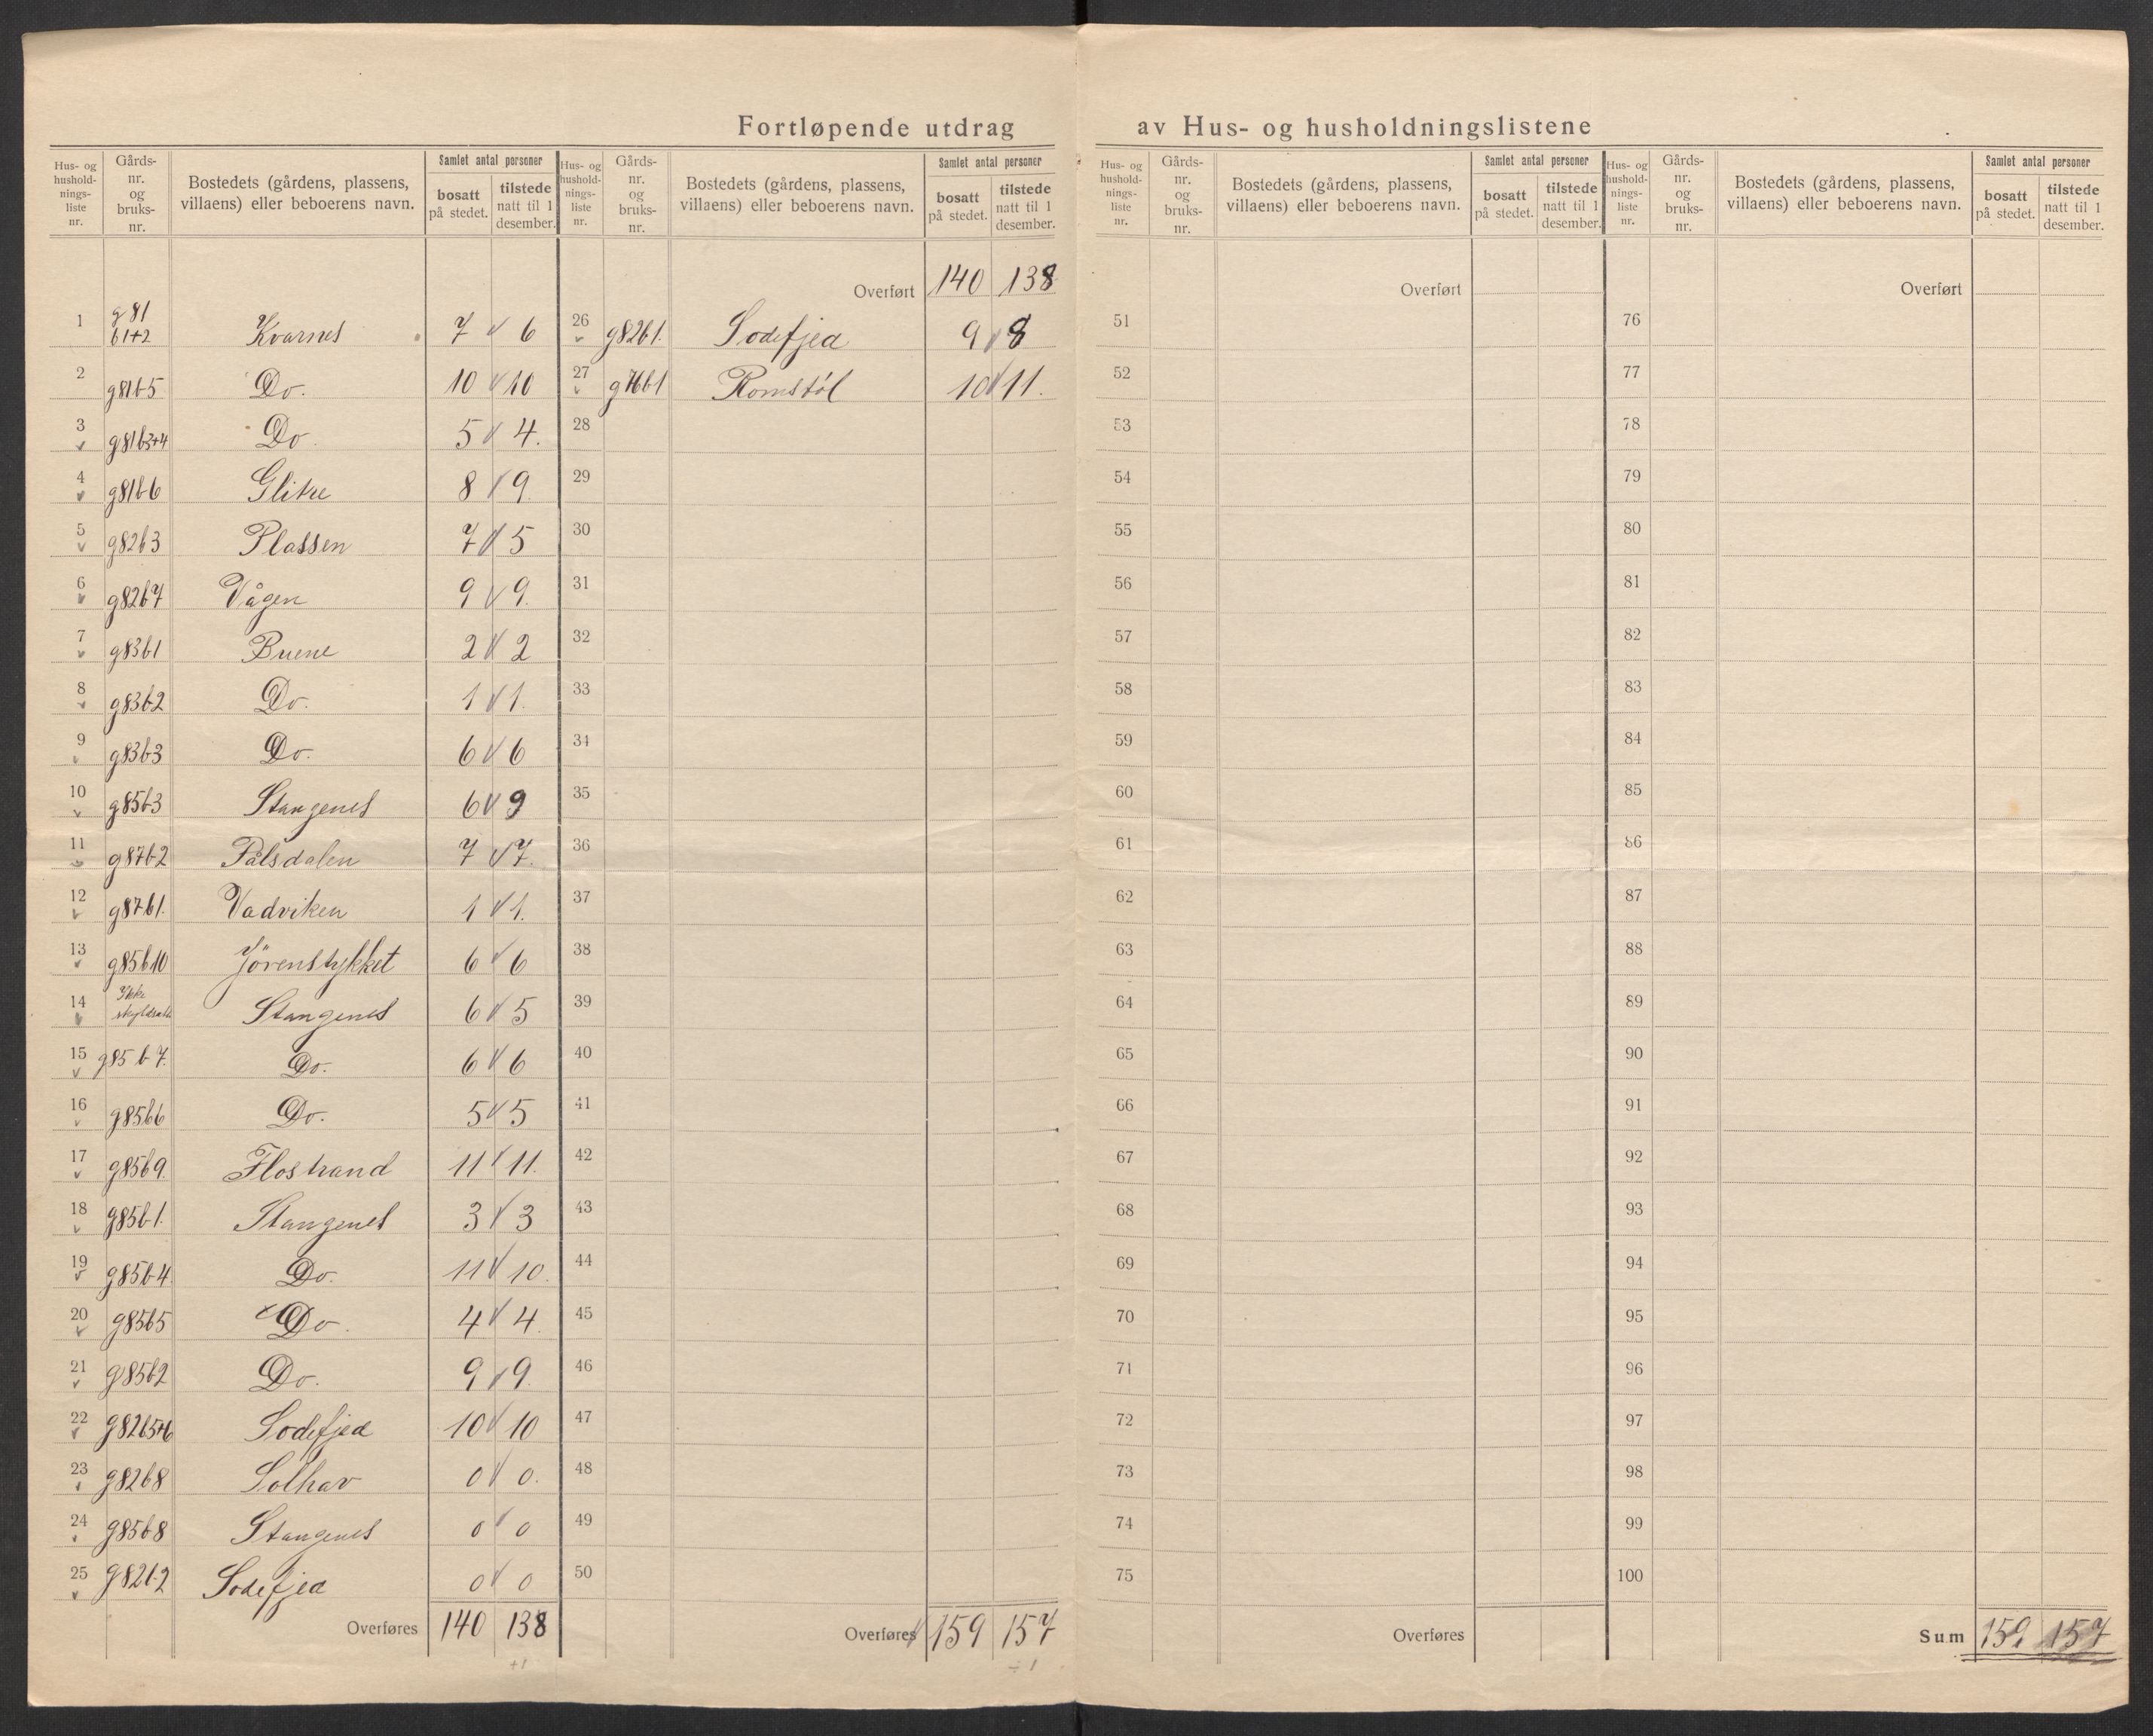 Fortløpende utdrag av Hus- og husholdningslistene
Hus- og husholdnings-liste nr. | Gårds-nr. og bruks-nr. | Bostedets (gårdens, plassens, villaens) eller beboerens navn. | Samlet antal personer | bosatt på stedet. | tilstede natt til 1 desember.
1 g81 b1+2 Kvarnes 7 6
2 g81b5 Do. 10 10
3 g81b3+4 Do. 5 4.
4 g81b6 Glitre 8 9.
5 g82b3 Plassen 7 5
6 g82b7 Vågen 9 9.
7 g83b1 Buene 2 2
8 g83b2 Do. 1 1.
9 g83b3 Do. 6 6
10 g85b3 Stangenes 6 9
11 g87b2 Pålsdalen 7 7.
12 g87b1. Vadviken 1 1.
13 g85b10 Jörenstykket 6 6
14 Ikke Stangenes 6 5
15 g85 b 7. Do. 6 6
16 g85b6 Do. 5 5
17 g85b9. Flostrand 11 11.
18 g85b1. Stangenes 3 3
19 g85b4. Do. 11 10.
20 g85b5 Do. 4 4.
21 g85b2 Do. 9 9.
22 g82b5+6 Sodefjed 10 10
23 g82b8 Solhav 0 0.
24 g85b8 Stangenes 0 0
25 g82b2 Sodefjed 0 0
Overføres 140 138
+1
Hus- og husholdnings-liste nr. | Gårds-nr. og bruks-nr. | Bostedets (gårdens, plassens, villaens) eller beboerens navn. | Samlet antal personer | bosatt på stedet. | tilstede natt til 1 desember.
Overført 140 138
26 g82b1. Sodefjed 9 8
27 g76b1 Romstöl 10 11.
28
29
30
31
32
33
34
35
36
37
38
39
40
41
42
43
44
45
46
47
48
49
50
Overføres 159 157
÷1
Hus- og husholdnings-liste nr. | Gårds-nr. og bruks-nr. | Bostedets (gårdens, plassens, villaens) eller beboerens navn. | Samlet antal personer | bosatt på stedet. | tilstede natt til 1 desember.
Overført
51
52
53
54
55
56
57
58
59
60
61
62
63
64
65
66
67
68
69
70
71
72
73
74
75
Overføres
Hus- og husholdnings-liste nr. | Gårds-nr. og bruks-nr. | Bostedets (gårdens, plassens, villaens) eller beboerens navn. | Samlet antal personer | bosatt på stedet. | tilstede natt til 1 desember.
Overført
76
77
78
79
80
81
82
83
84
85
86
87
88
89
90
91
92
93
94
95
96
97
98
99
100
Sum 159 157